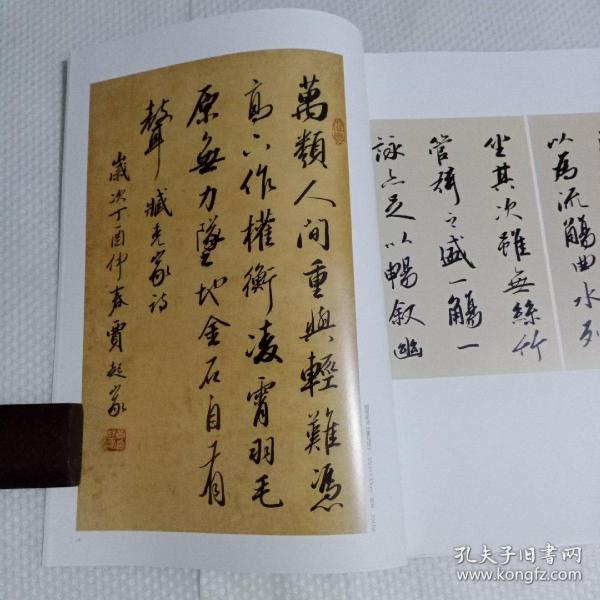 萬類人间重與輕難憑
高下作權衡凌霄羽毛
原無力墜地金石自有
聲 臧克家诗
歲次丁酉仲春賈起家
以為流觴曲水列
坐其次雖無絲竹
管絃之盛一觴一
詠亦足以暢叙幽
孔夫子旧书网
www.kongfz.com